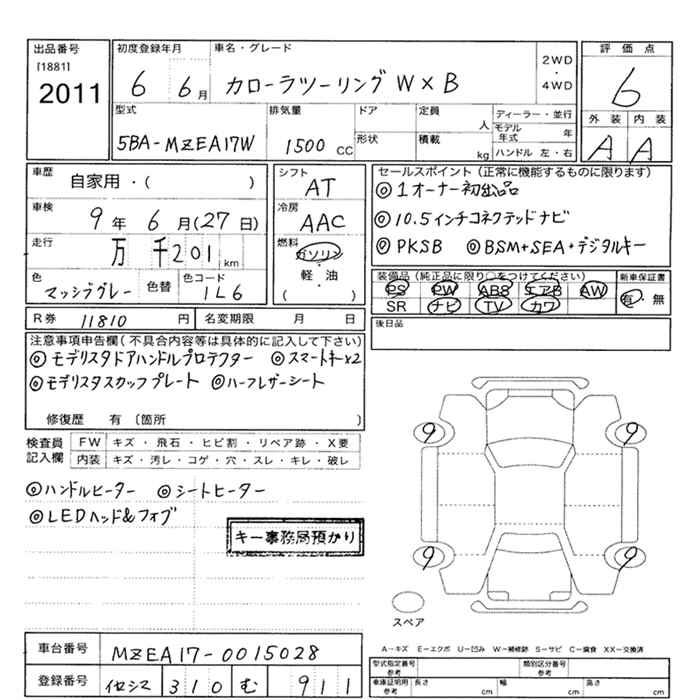 出品番号
[1881]
2011
初度登録年月
6 6月
車名・グレード
カローラツーリング W×B
2WD
・
4WD
評価点
6
外装 内装
A A
型式
5BA-MZEA17W
排気量
1500 CC
ドア
形状
定員
人
積載
kg
ディーラー・並行
モデル年式 年
ハンドル 左・右
車歴
自家用・( )
車検
9年 6月(27日)
走行
万 千201km
色
マッシブグレー
色替
色コード
1L6
シフト
AT
冷房
AAC
燃料
ガソリン
・
軽・油
( )
セールスポイント(正常に機能するものに限ります)
◎1オーナー初出品
◎10.5インチコネクテッドナビ
◎PKSB ◎BSM+SEA+デジタルキー
装備品(純正品に限り○をつけてください)
PS PW ABS エアB AW
SR ナビ TV カワ
新車保証書
有・無
後日品
R券 11810円
名変期限 月 日
注意事項申告欄(不具合内容等は具体的に記入して下さい)
◎モデリスタドアハンドルプロテクター ◎スマートキー×2
◎モデリスタスカッフプレート ◎ハーフレザーシート
修復歴 有〔箇所 〕
検査員記入欄
FW キズ・飛石・ヒビ割・リペア跡・X要
内装 キズ・汚レ・コゲ・穴・スレ・キレ・破レ
◎ハンドルヒーター ◎シートヒーター
◎LEDヘッド&フォグ
キー事務局預かり
9 9
9 9
スペア
A−キズ E−エクボ U−凹み W−補修跡 S−サビ C−腐食 XX−交換済
車台番号
MZEA17-0015028
登録番号
310 む 911
型式指定番号
参考
類別区分番号
参考
車庫証明用
参考
長さ cm
幅 cm
高さ cm